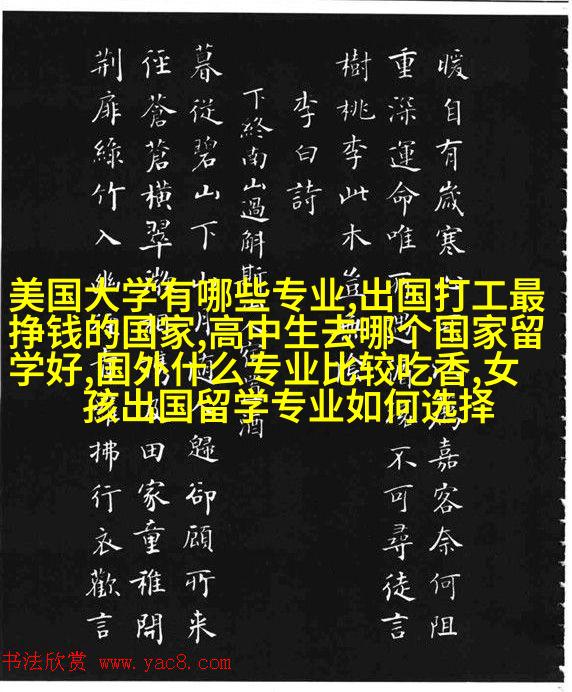 暖自有歲寒嘉客奈何阻
重深運命唯不可尋徒言
樹桃李此木豈
李白詩
下終南山過斛斯酒
暮從碧山下歸卻顧所来
徑蒼蒼橫翠田家童稚開
荆扉綠竹入拂行衣歡言
美国大学有哪些专业,出国打工最
挣钱的国家,高中生去哪个国家留
学好,国外什么专业比较吃香,女
孩出国留学专业如何选择
书法欣赏 www.yac8.com